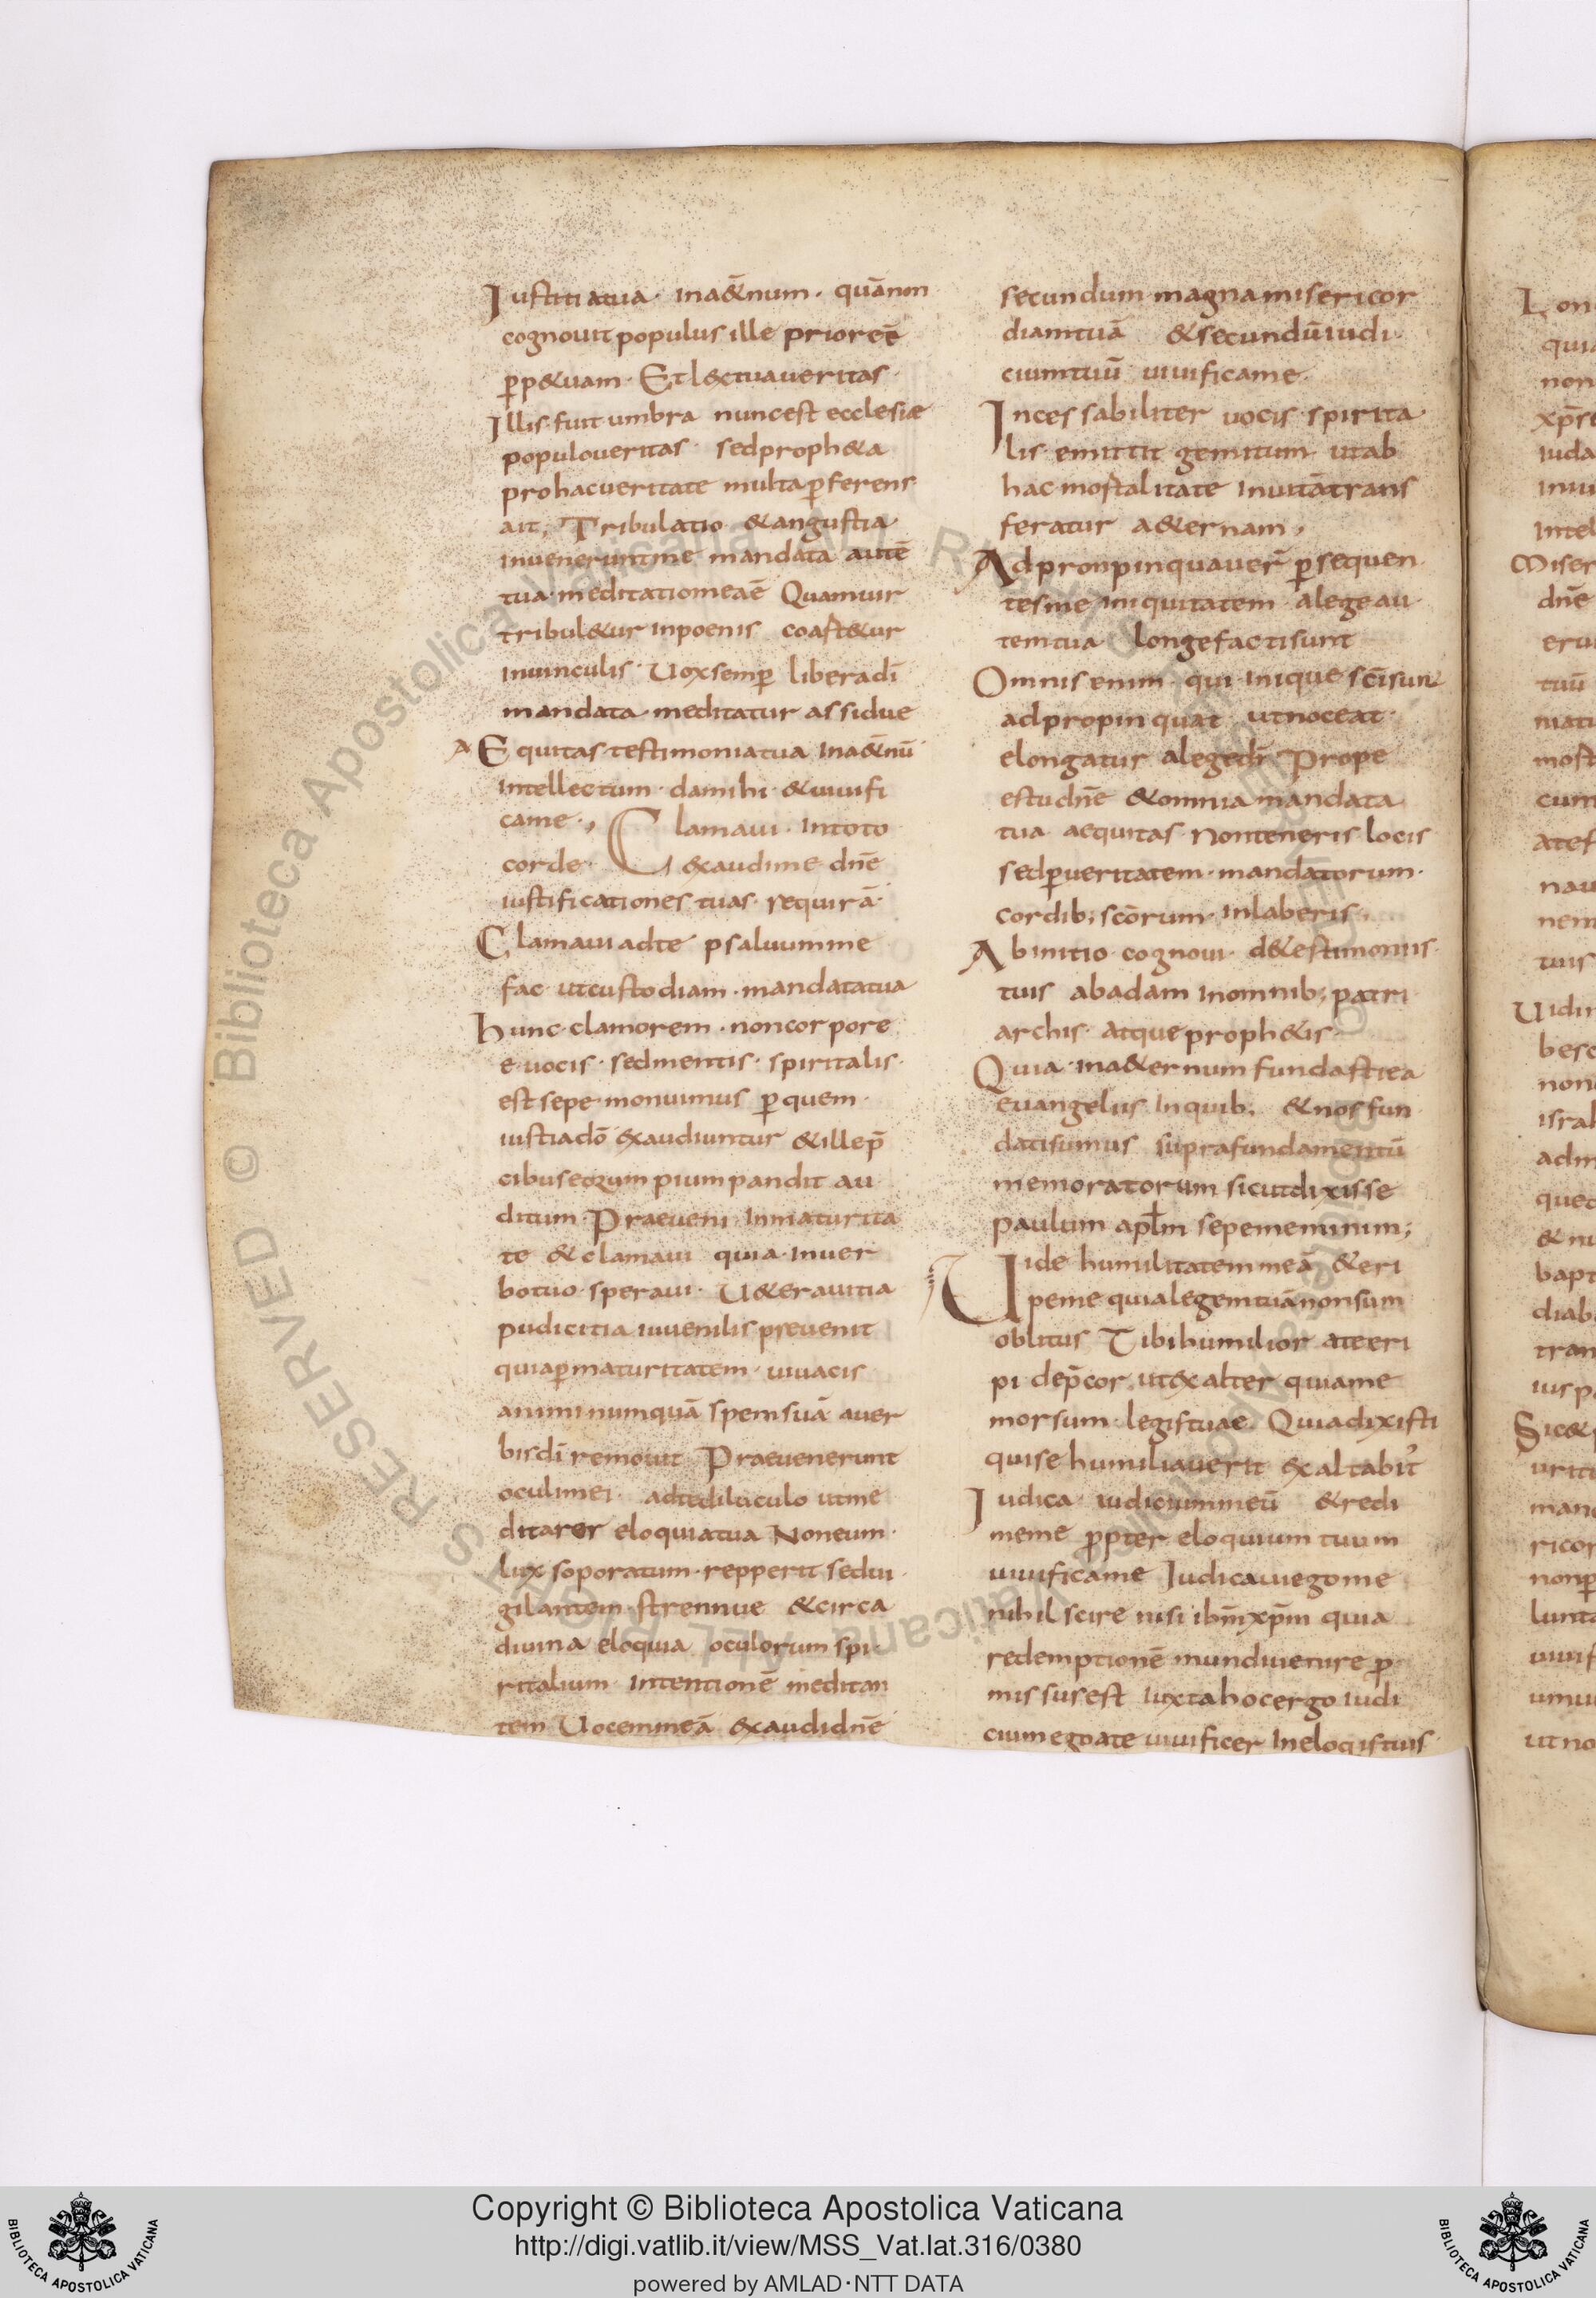 Iustitiatua· ina&̄num· quānon
cognouit populus ille priorē
p̄p&uam· Et l&ctuaueritas·
Illis fuit umbra nuncest ecclesiæ
populoueritas· sedproph&a
prohacueritate multap̄ferens
ait; Tribulatio &angustia
inueneruntme mandata autē
tua·meditatiomeaē Quamuir
tribul&ur inpoenis coaft&ur
inuinculis· Uoxsemp̄ liberadī
mandata·meditatur assidue
AEquitas·testimoniatua ina&̄nū
intellectum· damihi· &uiuifi
came·, Clamaui· intoto
corde· &xaudime dn̄e
iustificationes tuas· requirā·
Clamaui adte psaluumme
fac· utcustodiam·mandatatua
hunc·clamorem·noncorpore
e·uocis·sedmentis·spiritalis·
est sepe·monuimus p̄quem·
iustiadō &xaudiuntur &illep̄
cibuseorum pium pandit au
ditum· Praeueni inmaturita
te &clamaui quia·inuer
botuo·speraui· U&erauitia
pudicitia iuuenilis preuenit
quiap̄maturitatem·uiuacis
animi numquā spemsuā auer
bisdī remouit Praeuenerunt
oculimei· adtediluculo utme
ditaror eloquiatua Noneum·
lux soporatum·repperit sedui·
gilantem·strennue &circa
diuina eloquia oculorum spi·
ritalium· intentionē meditan
tem Uocemmeā &xaudidn̄e
secundum·magnamisericor
diamtuā &secundūiudi·
ciumtuū uiuificame·
Incessabiliter uocis·spirita
lis·emittit gemitum utab
hac·mortalitate inuitātrans
feratur a&ernam,
Adpronpinquauer̄ p̄sequen
tesme iniquitatem·alegeau
temtua longefactisunt
Omnis enim· qui·inique sc̄isunt
adpropinquat utnoceat·
elongatur alegedī Prope
estudn̄e &omnia mandata
tua aequitas Nonteneris locis
sedp̄ueritatem·mandatorum·
cordib; scōrum· inlaberis,
Abinitio·cognoui· d&estimoniis·
tuis abadam inomnib; patri
archis· atque proph&is·
Quia·ina&ernum fundastiea
euangeliis inquib; &nos fun
datisumus suprafundamentū
memoratorum sicutdixisse
paulum aplm̄ sepememinim;
Uide humilitatem meā &eri
peme quialegemtuānonsum
oblitus Tibihumilior ateeri
pi dep̄cor ut&xalter quiame
morsum·legistuae Quiadixisti
quise humiliauerit &xaltabit᾿
Iudica·iudiciummeū &redi
meme p̄pter eloquium tuum
uiuificame Iudicauiegome
nihil scire nisi ihm̄xpm̄ quia
redemptionē mundiuenire p̄
missusest iuxtahocergo iudi
ciumegoate uiuificer ineloqistuis